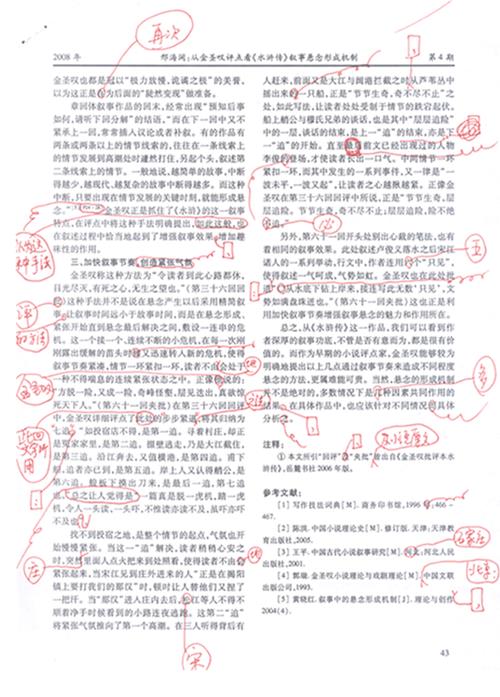 2008 年
邢海珣:从金圣叹评点看《水浒传》叙事悬念形成机制
第 4 期
再次
金圣叹也都是冠以“极力放慢,诡谲之极”的美誉,
以为这正是为后面的“陡然变现”做准备。
章回体叙事作品的回末,经常出现“预知后事
如何,请听下回分解”的结语,“而在下一回中又不
紧承上一回,常常插人议论或者补叙。有的作品有
两条或两条以上的情节线索的,往往在一条线索上
的情节发展到高潮处时遽然打住,另起个头,叙述第
二条线索上的情节。一般地说,越简单的故事,中断
得越少,越现代、越复杂的故事中断得越多。而这种
中断,只要出现在情节发展的关键时刻,就能形成悬
念。”金圣叹正是抓住了《水浒》的这一叙事
特点,在评点中将这种手法明确提出,如此这般,也
在叙述过程中恰当地起到了增强叙事效果,增加趣
味性的作用。
三、加快叙事节奏,创造紧张气氛
金圣叹称这种方法为“令读者到此心路都休,
目光尽灭,有死之心,无生之望也。”(第三十六回回
评)这种手法并不是说在悬念产生以后采用精简叙
事,让叙事时间远小于故事时间,而是在悬念形成、
紧张开始直到悬念最后解决之间,数设一连串的危
机。这一个接一个、连续不断的小危机,在每一次刚
刚露出缓解的苗头时又迅速转人新的危机,使得
叙事节奏紧凑,情节一环紧扣一环,读者不由会处于
一种不得喘息的连续紧张状态之中。正像说的:
“方脱一险,又成一险,奇峰怪壑,层见迭出,真欲惊
死天下人。”(第六十一回夹批)在第三十六回回评
中,金圣叹详细评点了此处的步步紧逼,将其归纳为
七追。“如投宿店不得,是第一追。寻着村庄,却正
是冤家家里,是第二追。掇壁逃走,乃是大江截住,
是第三追。沿江奔去,又值横港,是第四追。甫下
船,追者亦已到,是第五追。岸上人又认得艄公,是
第六追。舱板下摸出刀来,是最后一追,第七追
也。总之让人觉得是“一篇真是脱一虎机,踏一虎
机,令人一头读,一头吓,不惟读亦读不及,虽吓亦吓
不及也”
找不到投宿之地,是整个情节的起点,气氛也开
始慢慢紧张。当这一“追”解决,读者稍稍心安之
时,突然里面人点火把来到处照看,使得读者不由会
紧张起来,当宋江见到庄外进来的人“正是在揭阳
镇上要打我们的那汉”时,顿时让人替他们又捏了
一把汗。当“那汉”进人庄内去后,松江等人不得不
顺着净手时候看到的小路连夜逃跑。这第二“追”
将紧张气氛推向了第一个高潮。在三人听得背后有
人赶来,前面又是大江与阔港拦截之时从芦苇丛中
摇出来的一只船,正是“节节生奇,奇不尽不止”之
处,如此写法,让读者处处受制于情节的跌宕起伏。
船上艄公与穆氏兄弟的谈话,也是其中“层层追险”
中的一层,谈话的结束,是上一“追”的结束,亦是下
一“追”的开始。直到最前文已经出现过的人物
李俊的登场,才使读者长出一口气。中间情节一环
紧扣一环,而其中发生的一系列事件,又一律是“一
波未平,一波又起”,让读者之心越揪越紧。正像金
圣叹在第三十六回回评中所说,正是“节节生奇,层
层追险。节节生奇,奇不尽不止;层层追险,险不绝
不追。”
另外,第六十一回开头处到出心裁的笔法,也有
着相同的叙事效果。此处叙述卢俊义落水之后宋兵
诸人的一系列举动,行文中,作者连用九个“只见”,
使得叙述一气呵成,气势如虹。金圣叹也在此处批
道:“从水底下钻上岸来,接连写此无数‘只见’,文
势如满盘珠迸也。”(第六十一回夹批)这也正是利
用加快叙事节奏增强叙事悬念的魅力和作用所在。
总之,从《水浒传》这一作品,我们可以看到作
者深厚的叙事功底,不管是否有意而为,都是很有价
值的。而作为早期的小说评点家,金圣叹能够较为
明确地提出以上几点通过叙事节奏来造成不同程度
悬念的方法,更属难能可贵。当然,悬念的形成机制
并不是绝对的,多数情况下是种因素共同作用的
结果。在具体作品中,也应该针对不同情况具体
分析之。
注释:
① 本文所引“回评”“夹批”皆出自《金圣叹批评本水
浒传》,岳麓书社 2006 年版。
参考文献:
[1] 写作技法词典[M]. 商务印书馆,1996:466-
467.
[2] 陈洪. 中国小说理论史[M]. 修订版. 天津:天津教
育出版社,2005.
[3] 王平. 中国古代小说叙事研究[M]. 河北:河北人民
出版社,2001.
[4] 郭瑞. 金圣叹小说理论与戏剧理论[M]. 中国文联
出版公司,1993.
[5] 黄晓红. 叙事中的悬念形成机制[J]. 理论与创作
2004(4).
石家庄
北京:
五
多
庄
宋
43